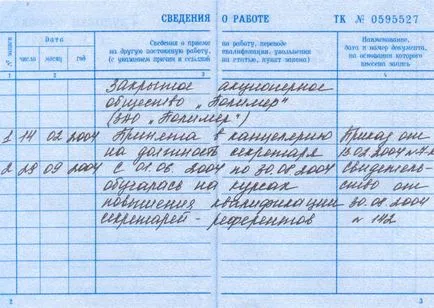 СВЕДЕНИЯ О РАБОТЕ ТК № 0595527
№ записи
Дата
Сведения о приеме на работу, переводе
на другую постоянную работу, увольнении
(с указанием причин и ссылкой на статью, пункт закона)
Наименование,
дата и номер документа,
на основании которого
внесена запись
число месяц год
1 2 3 4
Закрытое акционерное
общество „Полимер"
(ЗАО „Полимер")
1 14 02 2004 Принята в канцелярию Приказ от
на должность секретаря 13.02.2004
2 29 09 2004 С 01.08.2004 по 30.08.2004 Свидетель-
обучалась на курсах ство от
повышения квалификации 30.08.2004
секретарей-референтов № 142
2 3